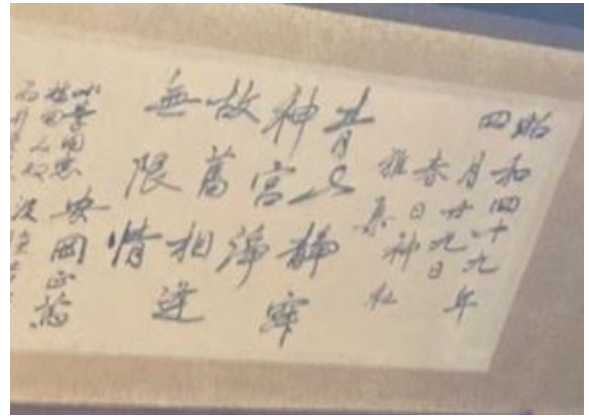 昭和四十九年
四月廿九日
春日神社
雅集
青山静寂
神宮淨
故舊相逢
無限情
安岡正篤